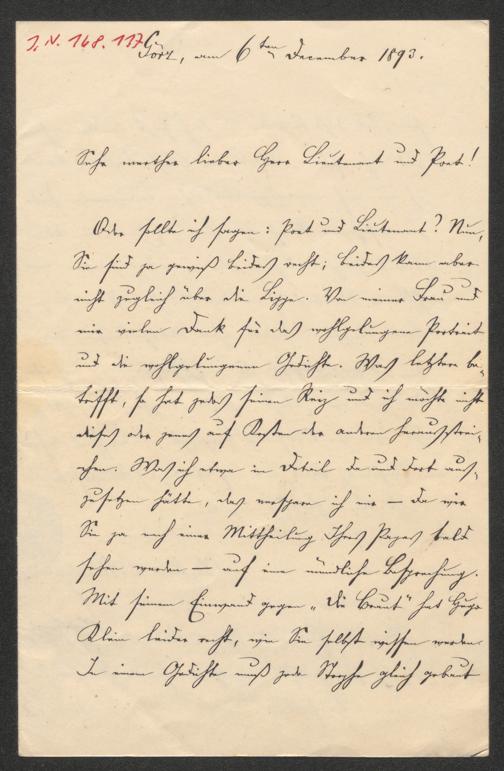 I. N. 168.117
Görz, am 6ten December 1893.
Sehr werther lieber Herr Lieutenant und Poet!
Oder sollte ich sagen: Poet und Lieutenant? Nun,
Sie sind ja gewiß beides recht; beides kann aber
nicht zugleich über die Lippe. Von meiner Frau und
mir vielen Dank für das wohlgelungene Portrait
und die wohlgelungenen Gedichte. Was letztere be-
trifft, so hat jedes seinen Reiz und ich möchte nicht
dieses oder jenes auf Kosten der anderen herausstrei-
chen. Was ich etwa im Detail da und dort aus-
zusetzen hätte, das verspare ich mir — da wir
Sie ja nach einer Mittheilung Ihres Papas bald
sehen werden — auf eine mündliche Besprechung.
Mit seinem Einwand gegen „die Braut" hat Hugo
Klein leider recht, wie Sie selbst wissen werden.
In einem Gedichte muß jede Strophe gleich gebaut